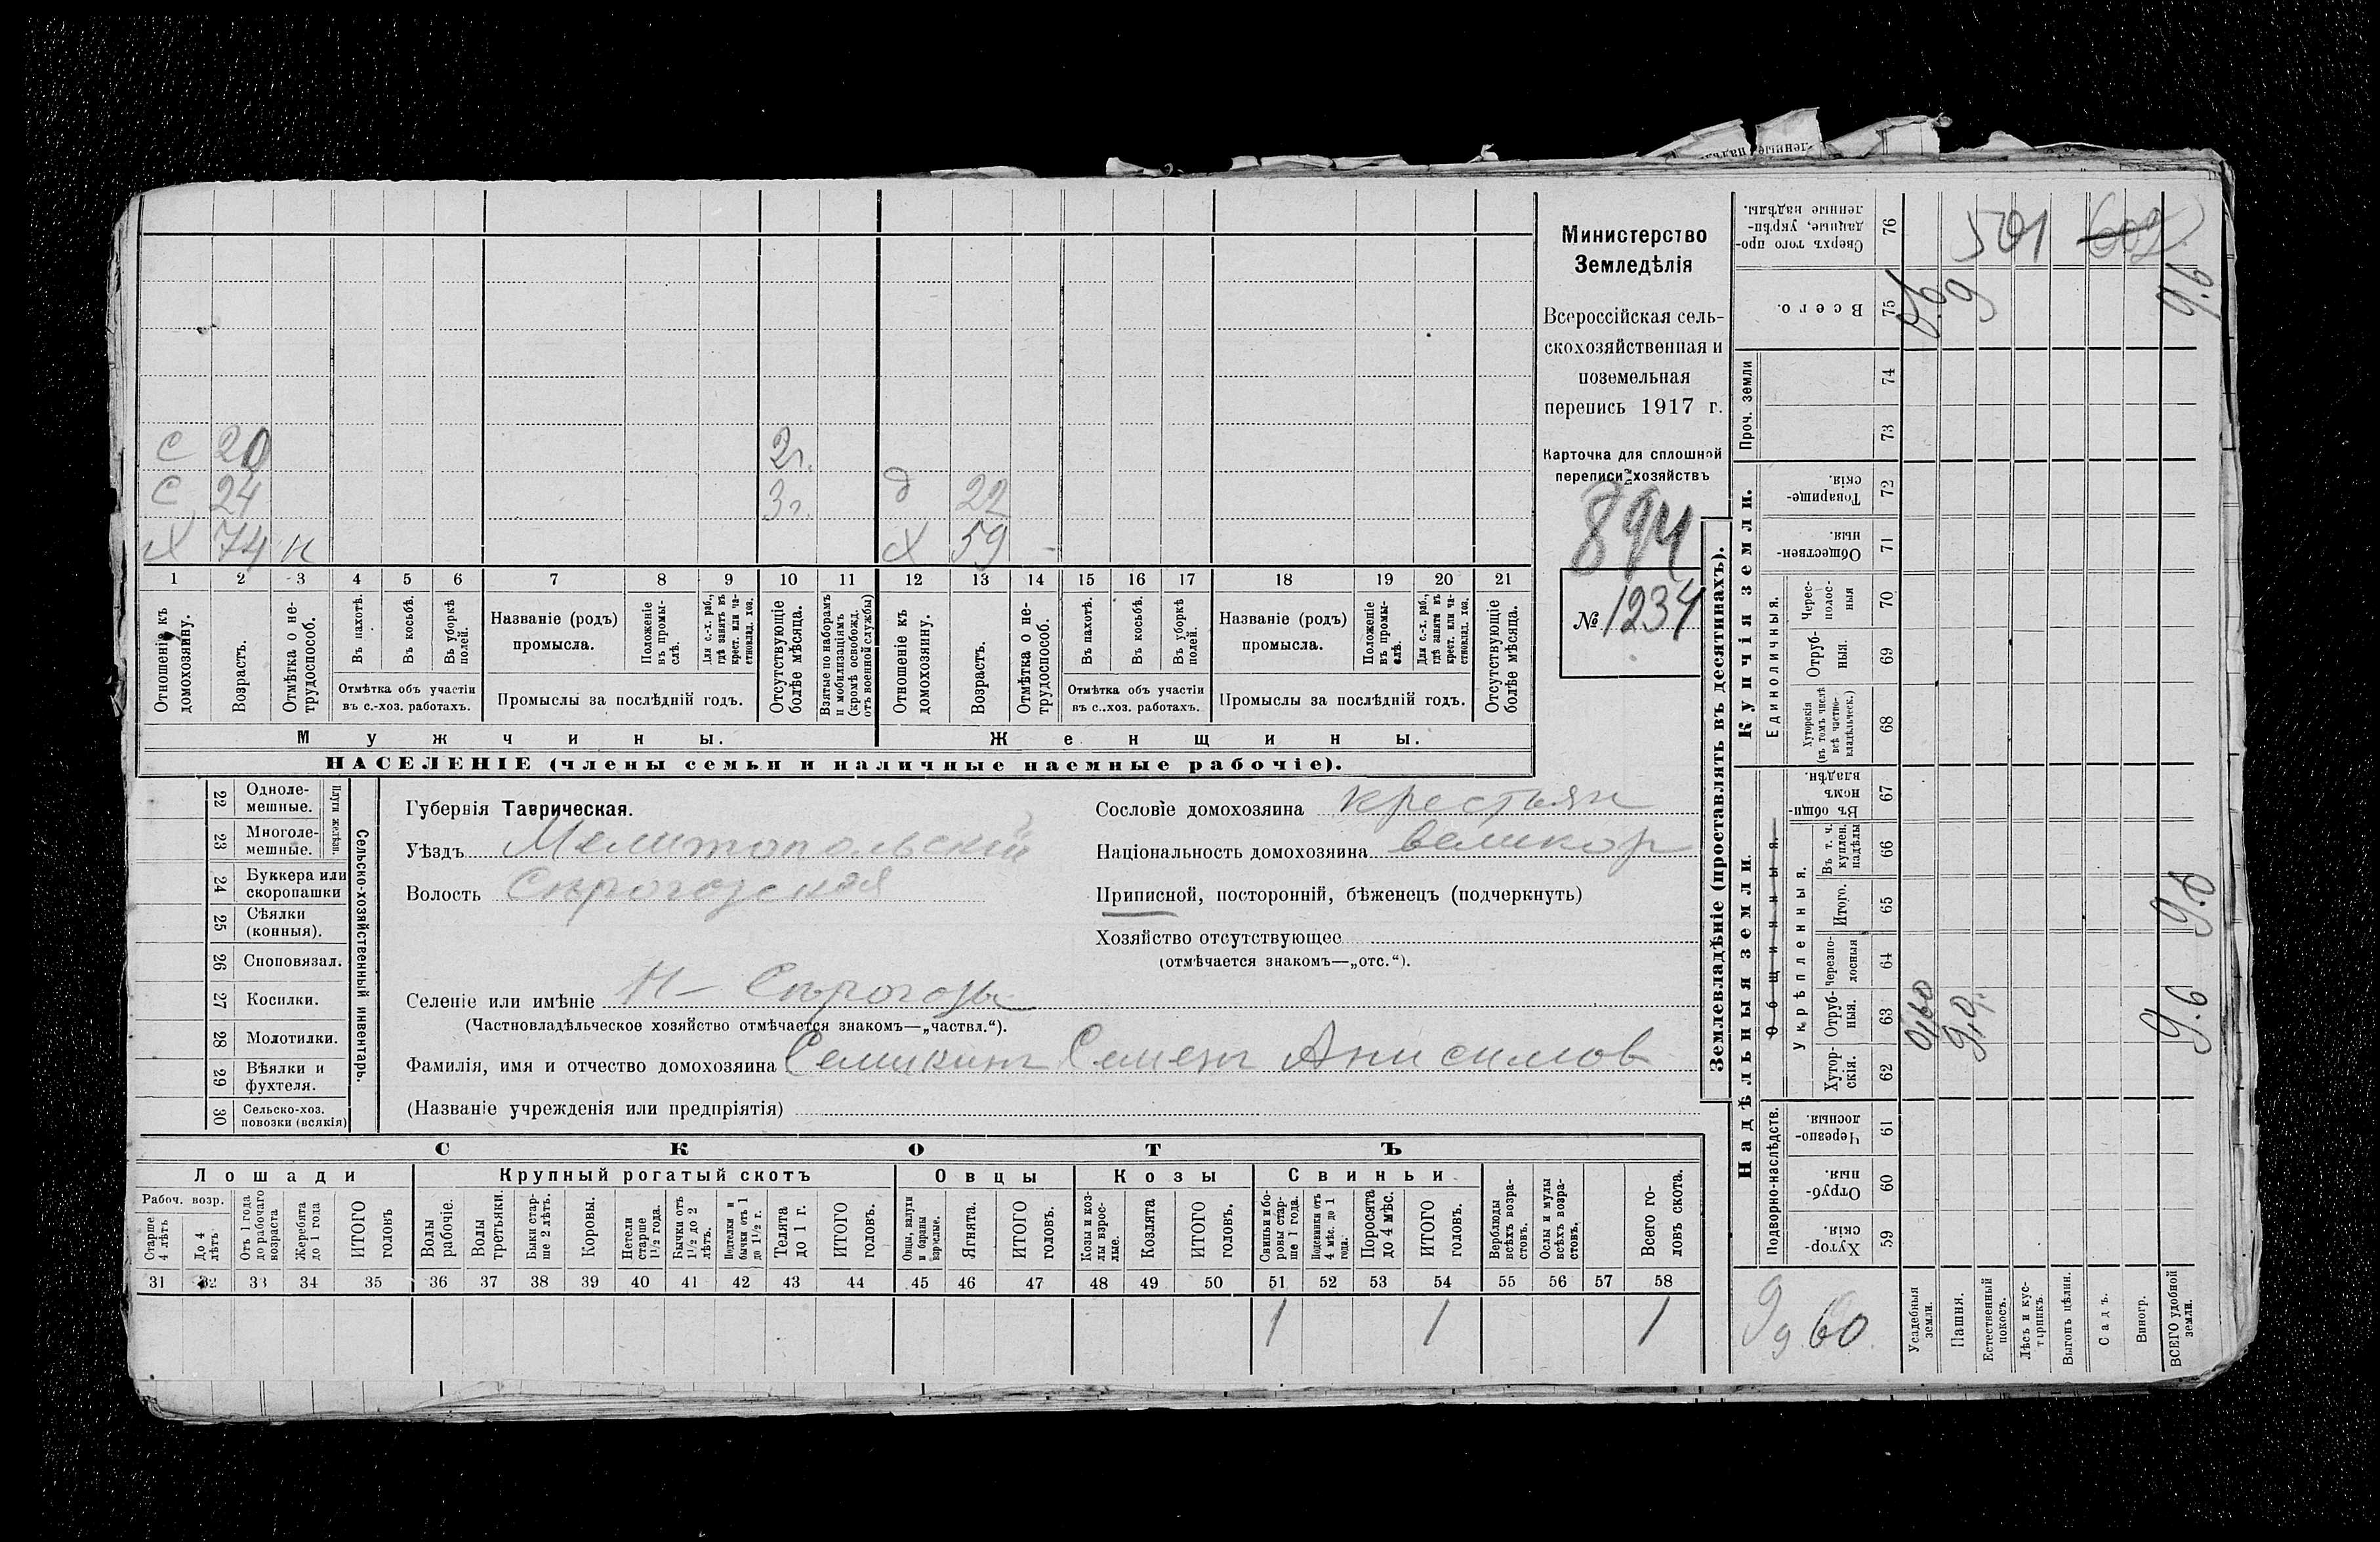 С 20 2г.
С 24 3г. д 22
Х 74 н Х 59 -
1 2 3 4 5 6 7 8 9 10 11 12 13 14 15 16 17 18 19 20 21
Отношеніе къ домохозяину.
Возрастъ.
Отмѣтка о нетрудоспособ.
Въ пахотѣ.
Въ косьбѣ.
Въ уборкѣ полей.
Отмѣтка объ участіи
въ с.-хоз. работахъ.
Названіе (родъ)
промысла.
Положеніе въ промыслѣ.
Для с.-х. раб., гдѣ занятъ въ крест. или частновлад. хоз.
Промыслы за послѣдній годъ.
Отсутствующіе болѣе мѣсяца.
Взятые по наборамъ и мобилизаціямъ (кромѣ освобожд. отъ военной службы)
Отношеніе къ домохозяину.
Возрастъ.
Отмѣтка о нетрудоспособ.
Въ пахотѣ.
Въ косьбѣ.
Въ уборкѣ полей.
Отмѣтка объ участіи
въ с.-хоз. работахъ.
Названіе (родъ)
промысла.
Положеніе въ промыслѣ.
Для с.-х. раб., гдѣ занята въ крест. или частновлад. хоз.
Промыслы за послѣдній годъ.
Отсутствующіе болѣе мѣсяца.
Мужчины. Женщины.
НАСЕЛЕНІЕ (члены семьи и наличные наемные рабочіе).
Министерство
Земледѣлія
Всероссійская сель-
скохозяйственная и
поземельная
перепись 1917 г.
Карточка для сплошной
переписи хозяйствъ
894
№ 1234
22 Одноле-
мешные.
23 Многоле-
мешные.
Плуги желѣзн.
24 Буккера или
скоропашки
25 Сѣялки
(конныя).
26 Сноповязал.
27 Косилки.
28 Молотилки.
29 Вѣялки и
фухтеля.
30 Сельско-хоз.
повозки (всякія)
Сельско-хозяйственный инвентарь.
Губернія Таврическая.
Уѣздъ Мелитопольскій
Волость Сѣрогозская
Селеніе или имѣніе Н - Сѣрогозы
(Частновладѣльческое хозяйство отмѣчается знакомъ—„частвл.“).
Фамилія, имя и отчество домохозяина Семикинъ Семенъ Анисимов
(Названіе учрежденія или предпріятія)
Сословіе домохозяина крестьян
Національность домохозяина великор
Приписной, посторонній, бѣженецъ (подчеркнуть)
Хозяйство отсутствующее
(отмѣчается знакомъ—„отс.“).
СКОТЪ
Лошади Крупный рогатый скотъ Овцы Козы Свиньи
Рабоч. возр.
Старше 4 лѣтъ
До 4 лѣтъ
Отъ 1 года до рабочаго возраста
Жеребята до 1 года
ИТОГО головъ
Волы рабочіе.
Волы третьяки.
Быки старше 2 лѣтъ.
Коровы.
Нетели старше 1½ года.
Бычки отъ 1½ до 2 лѣтъ.
Подтелки и бычки отъ 1 до 1½ г.
Телята до 1 г.
ИТОГО головъ.
Овцы, валухи и бараны взрослые.
Ягнята.
ИТОГО головъ.
Козы и козлы взрослые.
Козлята
ИТОГО головъ.
Свиньи и боровы старше 1 года.
Подсвинки отъ 4 мѣс. до 1 года.
Поросята до 4 мѣс.
ИТОГО головъ.
Верблюды всѣхъ возрастовъ.
Ослы и мулы всѣхъ возрастовъ.
Всего головъ скота.
31 32 33 34 35 36 37 38 39 40 41 42 43 44 45 46 47 48 49 50 51 52 53 54 55 56 57 58
1 1 1
Землевладѣніе (проставлять въ десятинахъ).
Сверхъ того проданные, укрѣпленные надѣлы. 76
501 602
Всего. 75
9.6
Проч. земли 74 73
Купчія земли.
Товарищескія. 72
Общественныя. 71
Единоличныя.
Чересполосныя 70
Отрубныя. 69
Хуторскія (въ томъ числѣ всѣ частновладѣльческ.) 68
Надѣльныя земли.
Общинныя.
Въ общиномъ владѣн. 67
Укрѣпленныя.
Въ т. ч. куплен. надѣлы 66
Итого. 65
9.6
Черезполосныя 64
Отрубныя. 63
0,60 9,0. 9.6
Хуторскія. 62
Подворно-наслѣдств.
Черезполосныя. 61
Отрубныя. 60
Хуторскія. 59
9д 60
Усадебныя земли.
Пашня.
Естественный покосъ.
Лѣсъ и кустарникъ.
Выгонъ цѣлин.
Садъ.
Виногр.
ВСЕГО удобной земли.